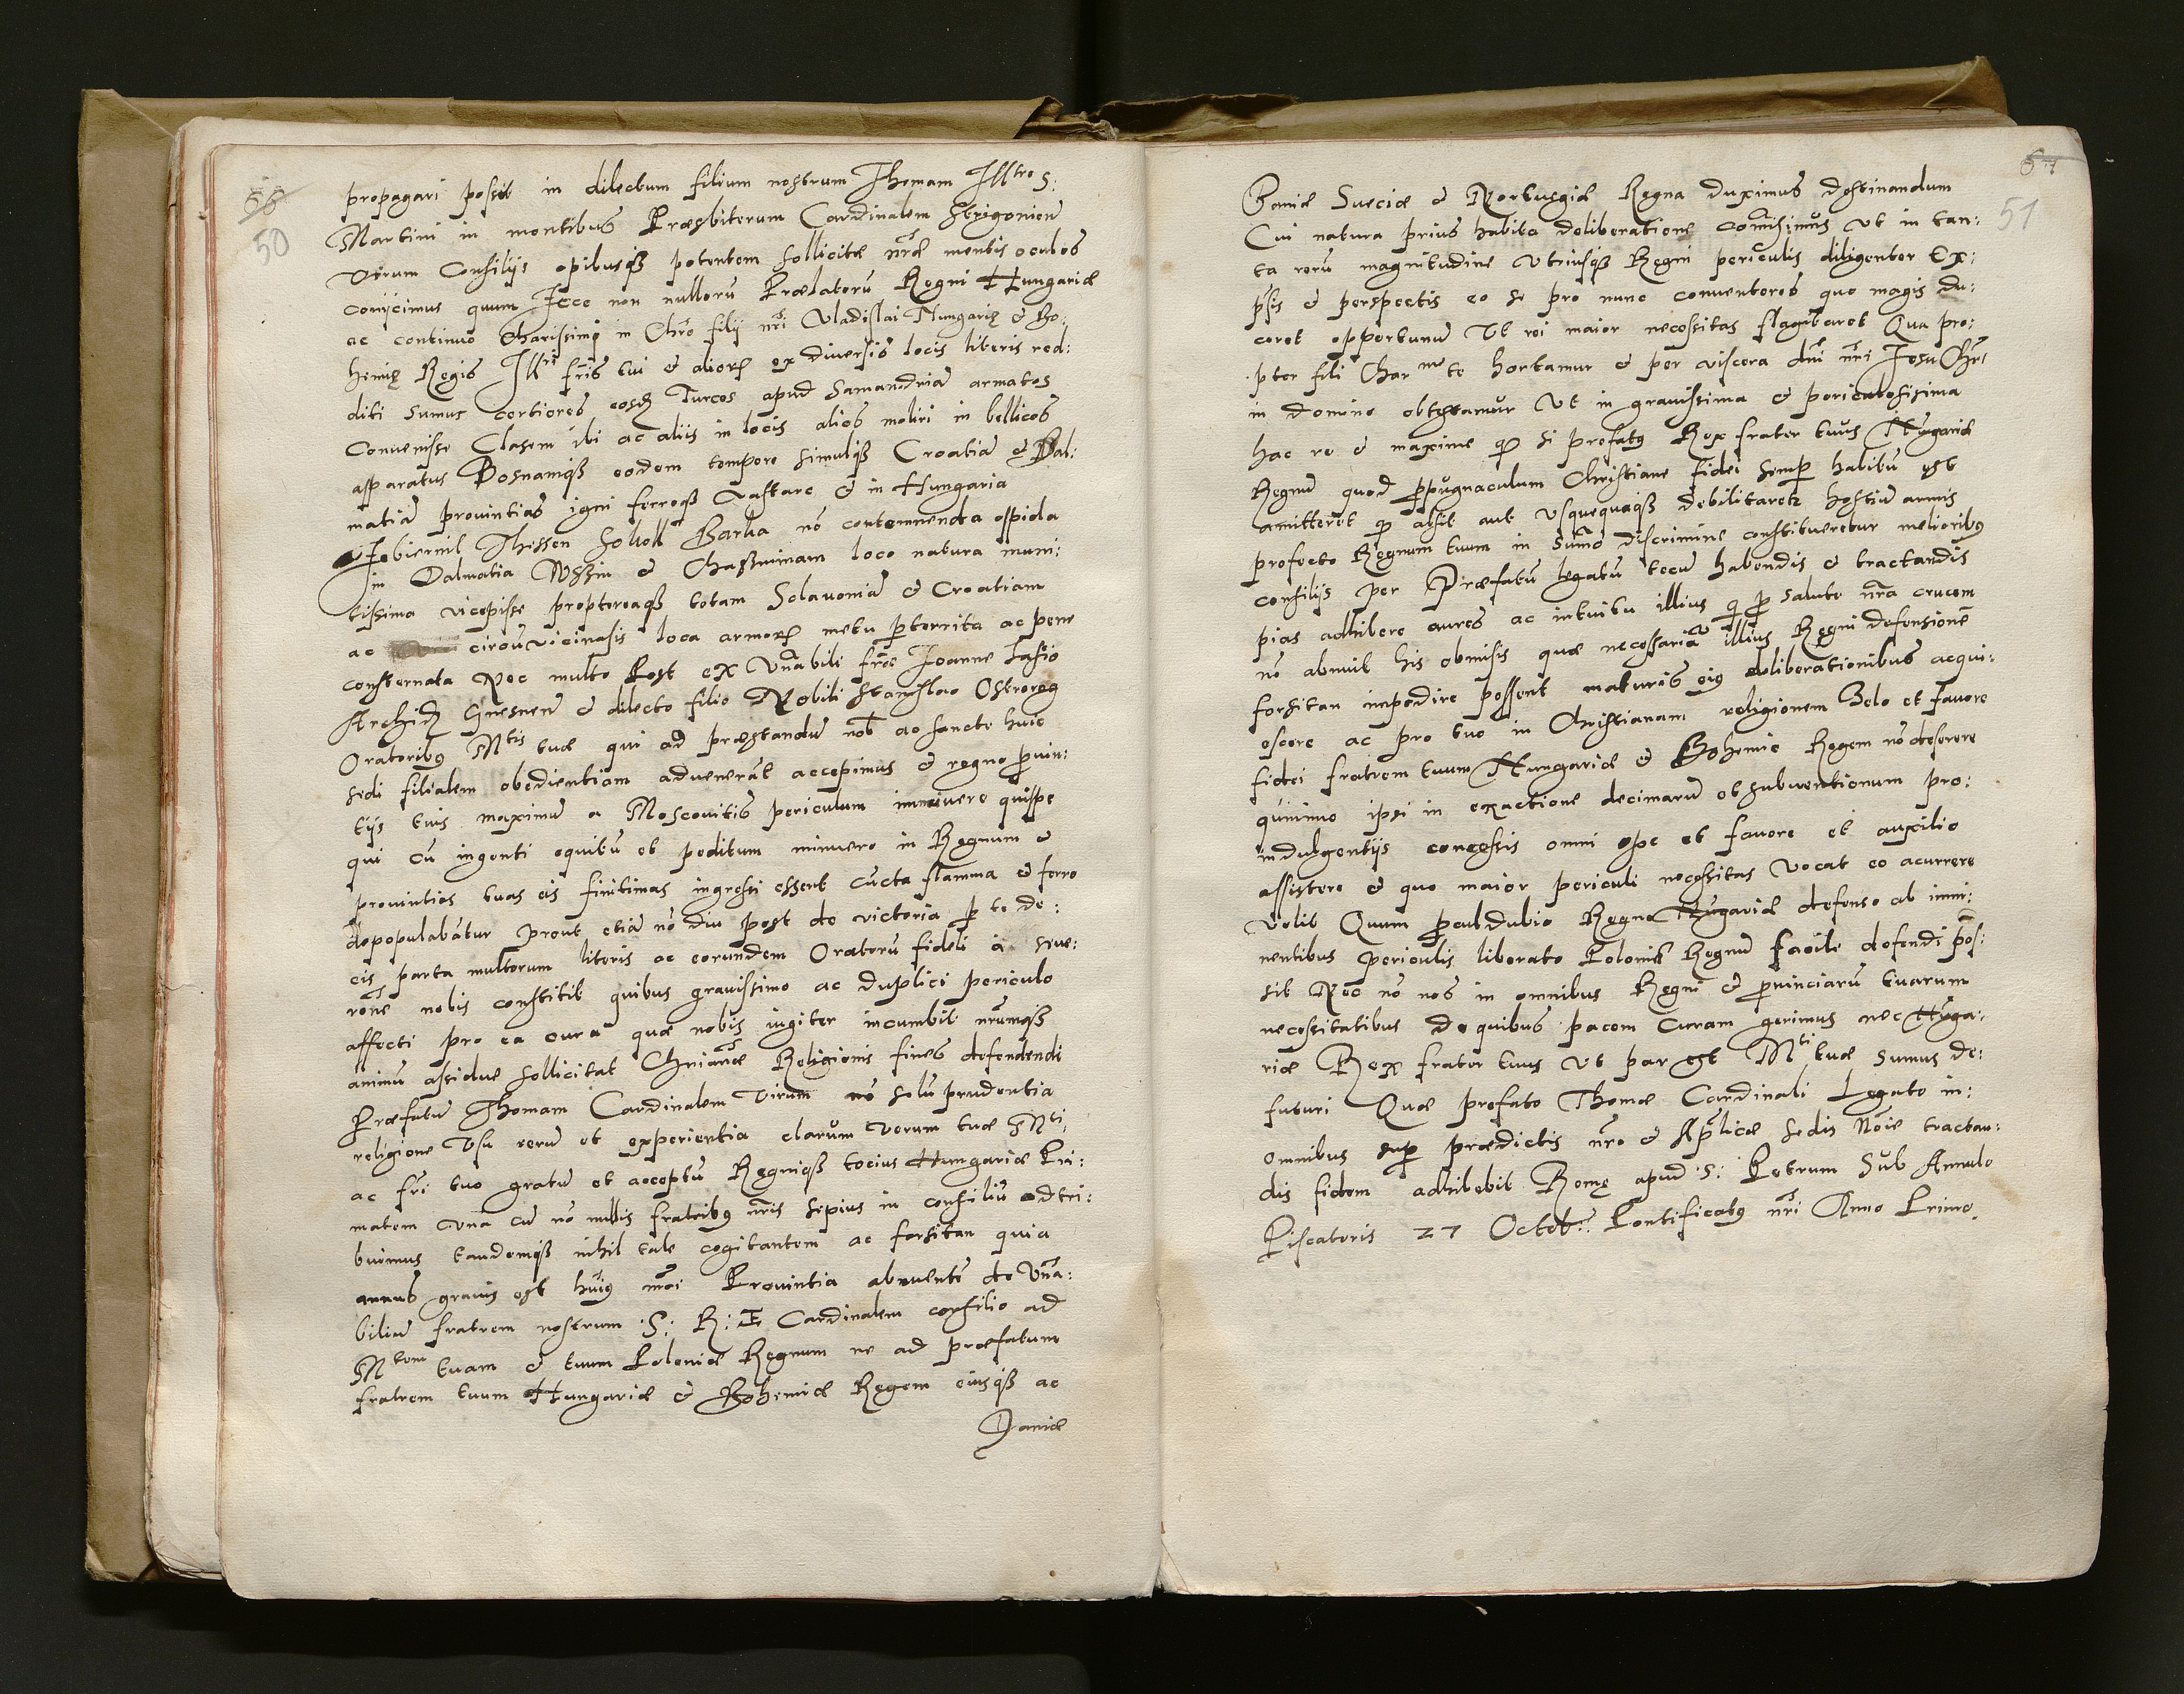 66
50
propagari possit in dilectum filium nostrum Thomam Illtro S:
Martini in montibus Præsbiterum Cardinalem Strigonien
Virum Consilijs opibusqß potentem sollicitæ nr̃æ mentis oculos
conijcimus quum Ecce non nullorũ Prælatorũ Regni Hungariæ
ac continuo Charissimi in Chrõ filij nr̃i Vladislai Hungarię & Bo:
hemię Regis Illris fr̃is tui & aliorꝝ ex diuersis locis literis red:
diti sumus certiores eosdẽ Turcos apud Samandriã armatos
Conuenisse Classem ibi ac aliis in locis alios moliri in bellicos
apparatus Bosnamqß eodem tempore simulqß Croatiã & Dal:
matiã prouintias igni ferroqß Vastare & in Hungaria
Thissen Barka nõ contemnenda oppida
in Dalmatia & loco natura muni:
tissima vicepisse proptereaqß totam Sclauoniã & Croatiam
ac circũvicinasis loca armorꝝ metu p̱territa ac pene
consternata Nec multo Post ex Vñabili frẽ Joanne Lasio
Archid̃ Gnesnen̄ & dilecto filio Nobili Stanislao Ostrorog
Oratoribꝰ Mtis tuæ qui ad præstandũ nob̃ ac sanctæ huic
sedi filialem obedientiam aduenerãt accepimus & regno p̱uin:
tijs tuis maximũ a Moscouitis periculum imminere quippe
qui cũ ingenti equitũ et peditum numero in Regnum &
prouintias tuas eis finitimas ingressi essent cũcta flamma & ferro
depopulabãtur prout etiã nõ diu post de victoria p̱ te de:
eis parta multorum literis ac eorundem Oratorũ fideli a seue:
rone nobis constitit quibus grauissimo ac duplici periculo
affecti pro ea cura quæ nobis iugiter incumbit nr̃umqß
animũ assidue sollicitat Chrĩanæ Religionis fines defendendi
Præfatũ Thomam Cardinalem Virum nõ solũ prudentia
religione Vsu rerũ et experientia clarum Verum tuæ Mti
ac fr̃i tuo gratũ et acceptũ Regniqß tocius Hungariæ Pri:
matem vna cũ nõ nullis fratribꝰ nr̃is sepius in consiliũ adtri:
buimus tandemqß nihil tale cogitantem ac forsitan quia
annus grauis est huiꝰ mõi Prouintia abnuentẽ de Vñ̃a:
biliũ fratrem nostrum S: R: E Cardinalem consilio ad
Mtem tuam & tuum Poloniæ Regnum ne ad præfatum
fratrem tuum Hungariæ & Bohemiæ Regem eiusqß ac
Daniæ
67
51
Daniæ Sueciæ & Noruegiæ Regna duximus destinandum
Cui natura prius habita deliberatione comisimus Vt in tan:
ta rerũ magnitudine Vtriusqß Regni periculis diligenter Ex:
p̃sis & perspectis eo se pro nunc conuenteres quo magis du:
ceret opportunũ Vt rei maior necessitas flagitaret Qua pro:
pter fili Charme te hortamur & per viscera dñi nr̃i Jesu Chr̃i
in domino obtestamur Vt in grauissima & periculosissima
hac re & maxime ꝙ si prefatꝰ Rex frater tuus Hungariæ
Regnũ quod p̱pugnaculum Christiane fidei semp̱ habitũ est
amitteret ꝙ absit aut Vsquequaqß debilitaretꝛ hostiũ armis
profecto Regnum tuum in sũmo discrimine constitueretur melioribꝰ
consilijs per Præfatũ legatũ tecũ habendis & tractandis
pias adhibere aures ac intuitu illius qi p̱ salute nr̃a crucem
nõ abnuit his obmisis quæ necessariã illius Regni defensionẽ
forsitan impedire possent maturis eiꝰ deliberationibus acqui:
escere ac pro tuo in Christianam religionem Zelo et fauore
fidei fratrem tuum Hungariæ & Bohemie Regem nõ deserere
quinimo ipsi in exactione decimarũ et subuentionum pro:
indulgentijs concessis omni ope et fauore et auxilio
assistere & quo maior periculi necessitas Vocat eo acurrere
Velit Quum p̱culdubio Regno Hũgariæ defenso ab immi:
nentibus periculis liberato Poloniæ Regnũ facile defendi pos:
sit Nec nõ nos in omnibus Regni & p̱uinciarũ tuarum
necessitatibus de quibus pacem Curam gerimus nec Hũga:
riæ Rex frater tuus Vt par est Mti tuæ sumus de:
futuri Quæ prefato Thomæ Cardinali Legato in:
omnibus sup̱ prædictis nr̃o & Ap̃licæ sedis Nõie tractan:
dis fidem adhibebit Romę apud S: Petrum Sub Annulo
Piscatoris 27 Octob: Pontificatꝰ nr̃i Anno Primo